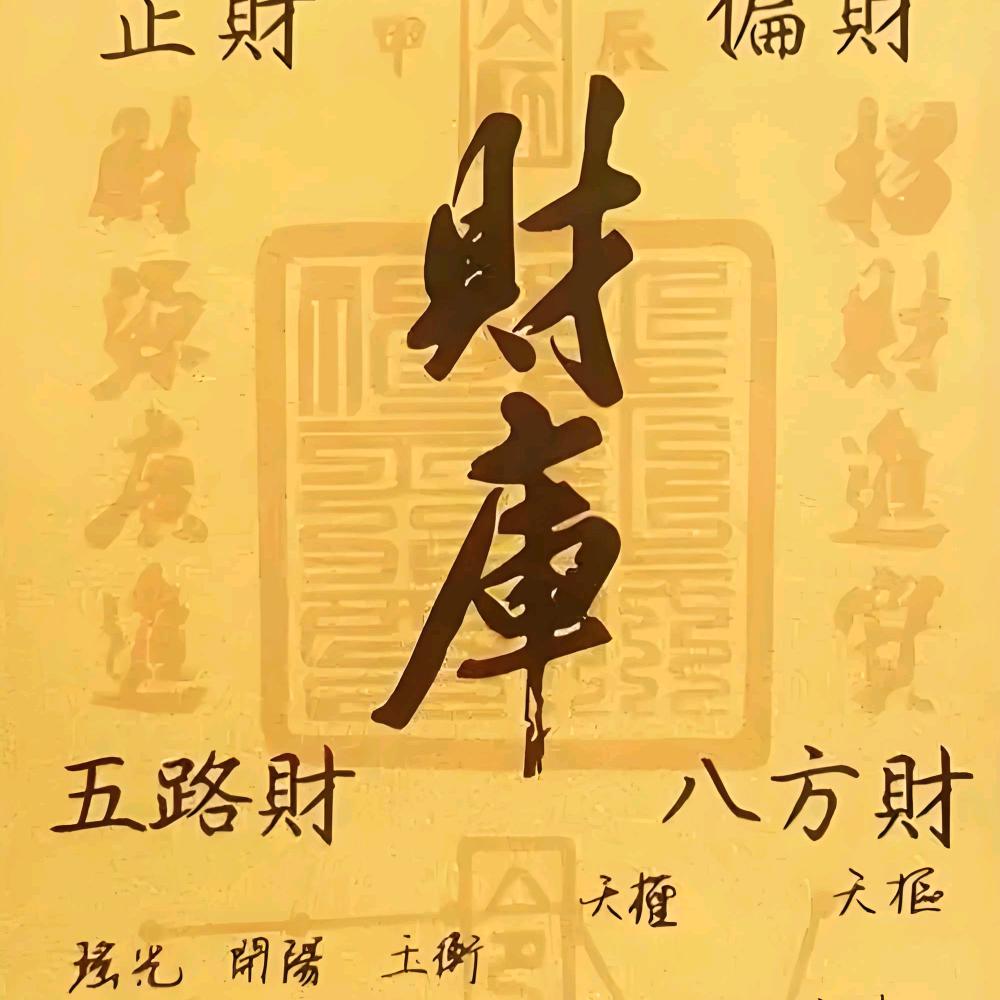 正財
偏財
甲
辰
財庫
招財進寶
財源廣進
五路財
八方財
天權
天樞
瑤光
開陽
玉衡